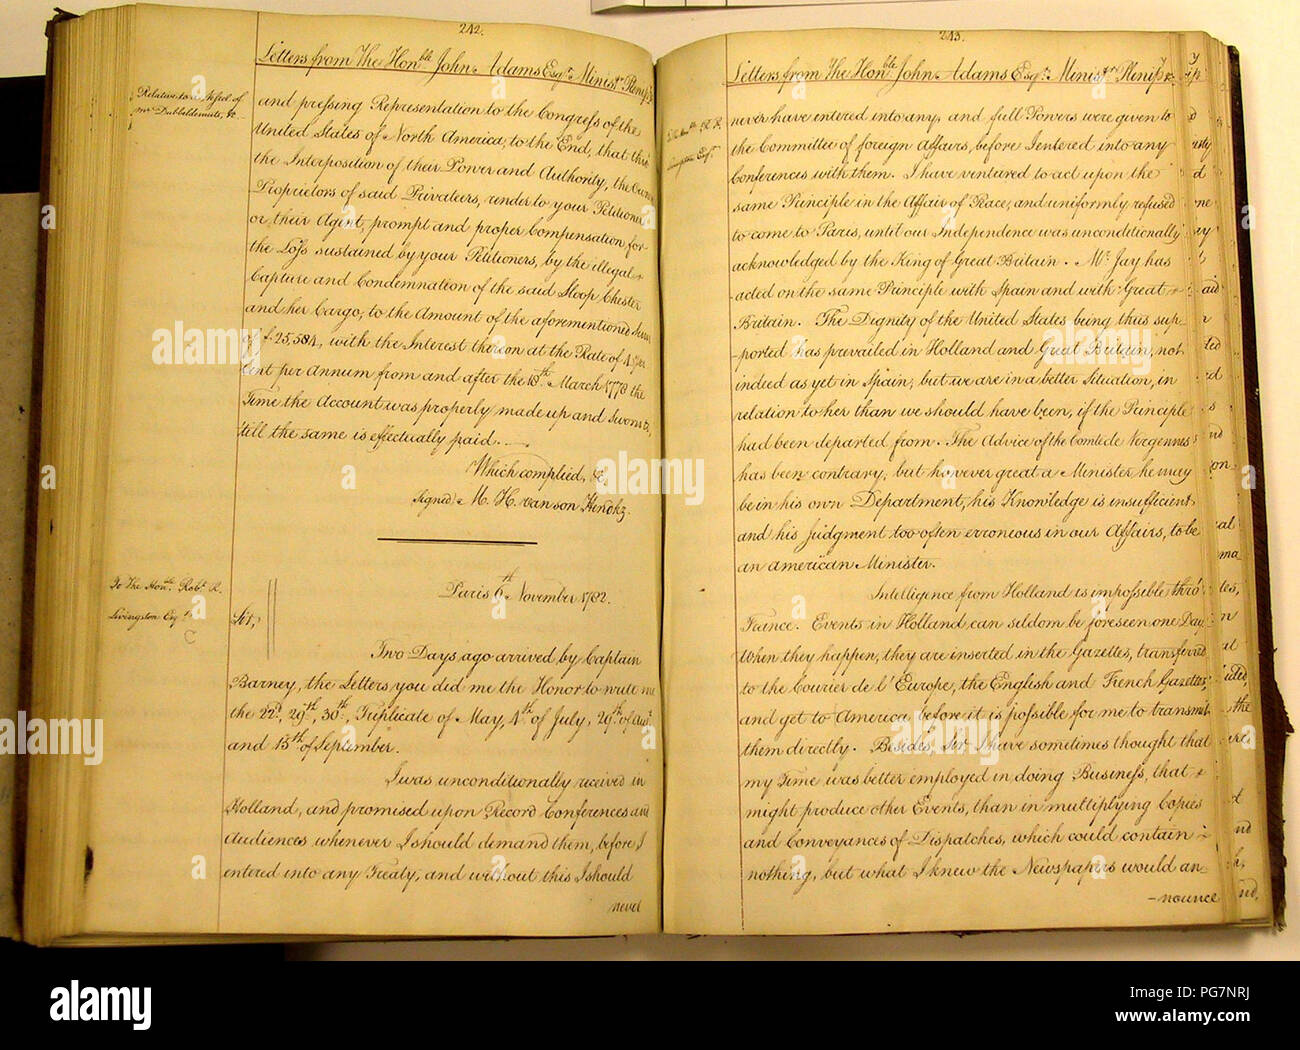 242.
Letters from The Hon.ble John Adams Esq.r Minist.r Plenip.y
Relative to a Vessel of
mr Dubbeldemuts, &c.
and pressing Representation to the Congress of the
United States of North America, to the End, that thro'
the Interposition of their Power and Authority, the Owners
Proprietors of said Privateers, render to your Petitioners
or their Agent, prompt and proper Compensation, for
the Loss sustained by your Petitioners, by the illegal
Capture and Condemnation of the said Sloop Chester
and her Cargo, to the Amount of the aforementioned Sum
of f.25,584, with the Interest thereon at the Rate of 4 per
Cent per Annum from and after the 18th March 1778 the
Time the Account was properly made up and Sworn to,
till the same is effectually paid.
Which complied, &c.
Signed M. H. van son Hendkz.
Paris 6th November 1782.
To The Hon.ble Rob.t R.
Livingston Esq.r
C
Sir,
Two Days ago arrived by Captain
Barney, the Letters you did me the Honor to write me
the 22d, 29th, 30th, Triplicate of May, 4th of July, 29th of Aug.t
and 15th of September.
I was unconditionally received in
Holland, and promised upon Record Conferences and
Audiences whenever I should demand them, before I
entered into any Treaty, and without this I should
never
243.
Letters from The Hon.ble John Adams Esq.r Minist.r Plenip.y
R. R.
Livingston Esq.r
never have entered into any, and full Powers were given to
the Committee of foreign Affairs, before I entered into any
Conferences with them. I have ventured to act upon the
same Principle in the Affair of Peace, and uniformly refused
to come to Paris, until our Independence was unconditionally
acknowledged by the King of Great Britain. Mr. Jay has
acted on the same Principle with Spain and with Great
Britain. The Dignity of the United States being thus sup-
-ported has prevailed in Holland and Great Britain; not
indeed as yet in Spain, but we are in a better Situation, in
relation to her than we should have been, if the Principle
had been departed from. The Advice of the Comte de Vergennes
has been contrary, but however great a Minister he may
be in his own Department, his Knowledge is insufficient
and his Judgment too often erroneous in our Affairs, to be
an american Minister.
Intelligence from Holland is impossible thro'
France. Events in Holland can seldom be foreseen one Day.
When they happen, they are inserted in the Gazettes, transferred
to the Courier de l'Europe, the English and French Gazettes,
and get to America before it is possible for me to transmit
them directly. Besides, Sir, I have sometimes thought that
my Time was better employed in doing Business, that
might produce other Events, than in multiplying Copies
and Conveyances of Dispatches, which could contain
nothing, but what I knew the Newspapers would an-
-nounce
a
alamy
alamy
alamy
alamy
Image ID: PG7NRJ
www.alamy.com